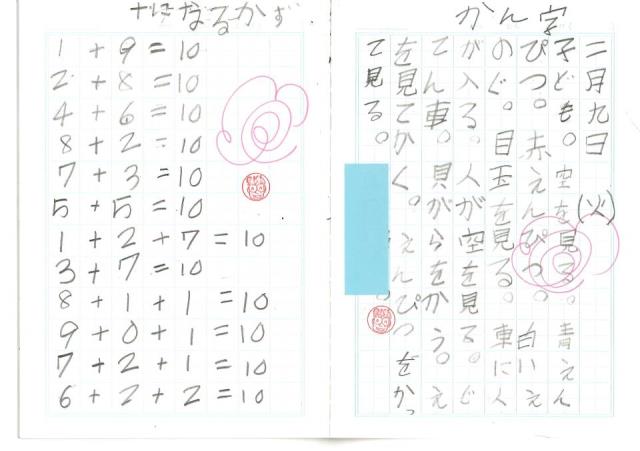 十になるかず
1+9=10
2+8=10
4+6=10
8+2=10
7+3=10
5+5=10
1+2+7=10
3+7=10
8+1+1=10
9+0+1=10
7+2+1=10
6+2+2=10
かん字
二月九日(火)
子ども。空を見る。青えん
ぴつ。赤えんぴつ。白いえ
のぐ。目玉を見る。車に人
が入る。人が空を見る。じ
てん車。貝がらをかう。え
を見てかく。えんぴつをかっ
て見る。